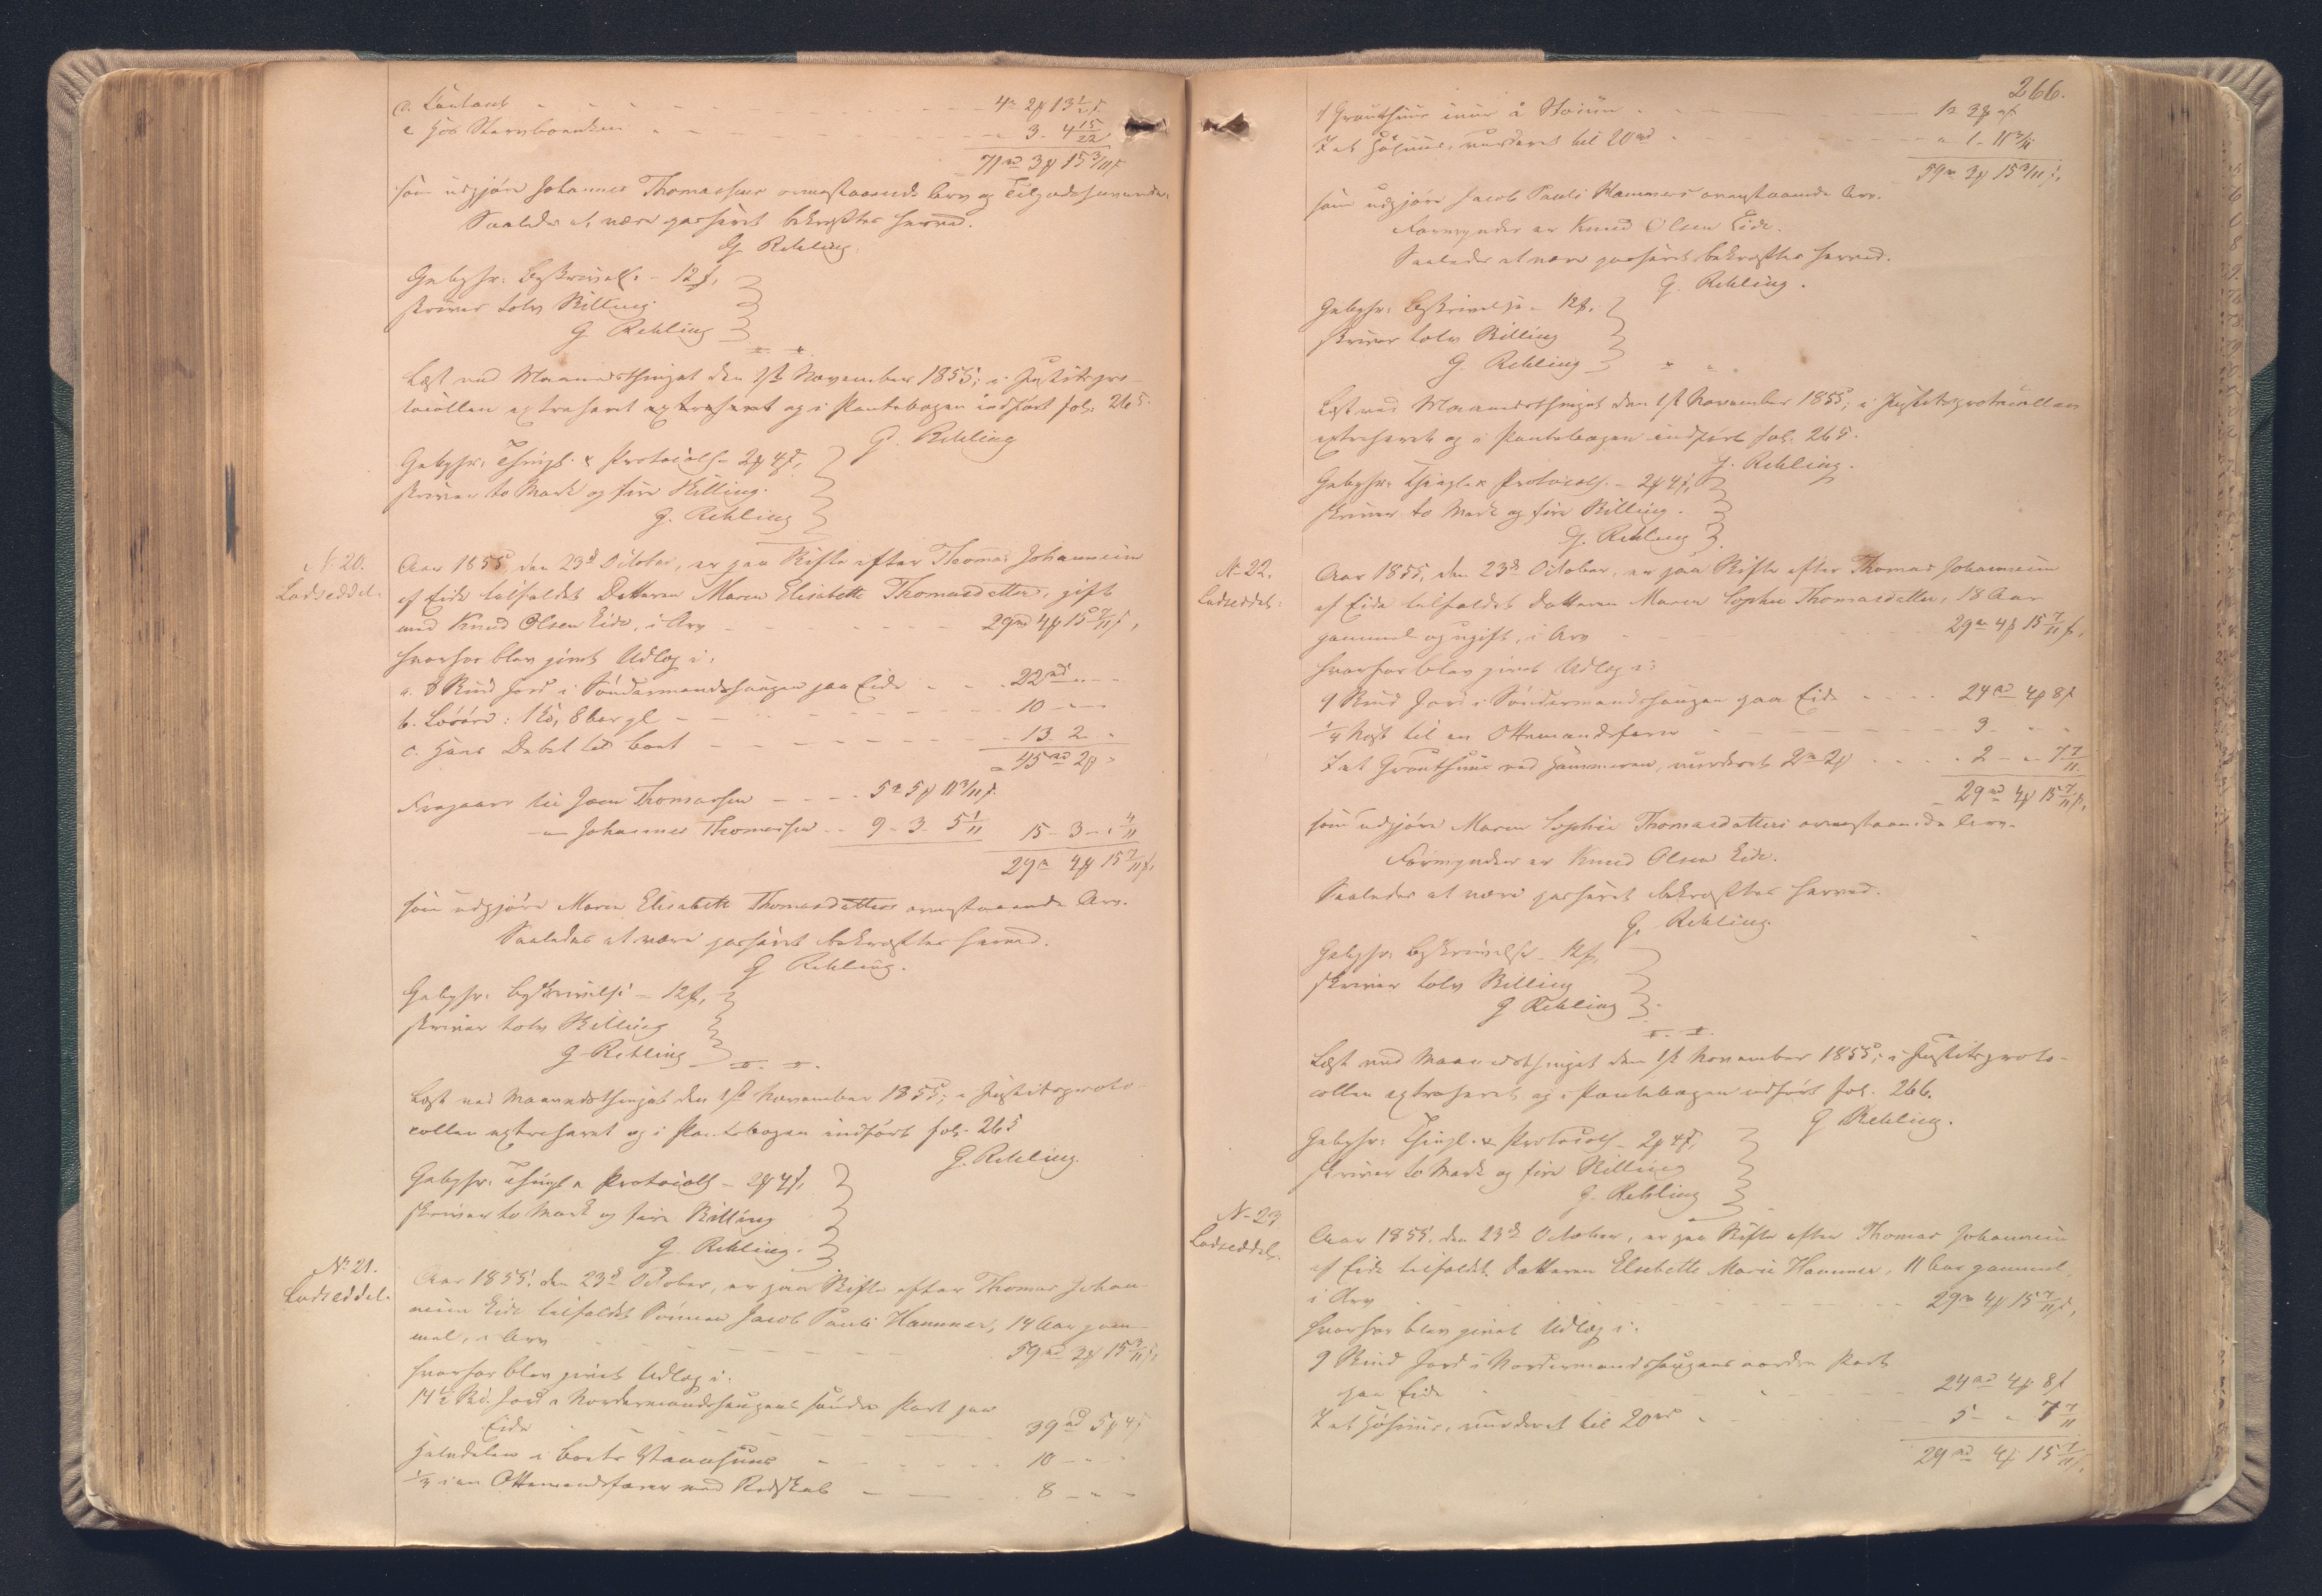 d. Contant - - - 4 rd 2 ꝑ 13½ s.
e. Hos Starvboenken - - - " 3 - 4 15/22
71 rd 3 ꝑ 15 3/11 s.
som udgjöre Johannes Thomassens ovenstaaende Arv og Tilgodehavende.
Saaledes at være passeret bekræftes herved.
G. Rehling.
Gebyhr: Beskrivelse - 12 s,
skriver tolv Skilling.
G. Rehling
Læst ved Maanedsthinget den 1ste November 1855; i Justitspro-
tocollen extraheret extraheret og i Pantebogen indført fol. 265.
G. Rehling
Gebyhr: Thingl. & Protocoll - 2 ꝑ 4 s,
skriver to Mark og fire Skilling.
G. Rehling
No 20.
Lodseddel.
Aar 1855, den 23de October, er paa Skifte efter Thomas Johannesen
af Eide tilfaldet Datteren Maren Elisabeth Thomasdatter, gift
med Knud Olsen Eide, i Arv - - - 29 rd 4 ꝑ 15 7/11 s,
hvorfor blev givet Udlæg i:
a. 8 Skind Jord i Söndermandshaugen paa Eide - - - 22 rd " -
b. Lösöre: 1 Ko, 8 bar gl - - - 10 - " -
c. Hans Debet til Boet - - - 13. 2. "
45 rd 2 ꝑ "
Fragaaer til Joen Thomassen - - - 5 rd 5 ꝑ 11 3/11 s.
— Johannes Thomassen - - 9 - 3 - 5 1/11 15 - 3 - " 4/11
29 rd 4 ꝑ 15 7/11 s,
som udgjöre Maren Elisabeth Thomasdatters ovenstaaende Arv.
Saaledes at være passeret bekræftes herved.
G Rehling.
Gebyhr: Beskrivelse - 12 s,
skriver tolv Skilling
G Rehling
Læst ved Maanedsthinget den 1ste November 1855; i Justitsproto-
collen extraheret og i Pantebogen indført fol. 265
G. Rehling.
Gebyhr: Thingl & Protocoll - 2 ꝑ 4 s,
skriver to Mark og fire Skilling
G. Rehling.
No 21.
Lodseddel.
Aar 1855, den 23de October, er paa Skifte efter Thomas Johan-
nesen Eide tilfaldet Sönnen Jacob Pauli Hammer, 14 Aar gam-
mel, i Arv - - - 59 rd 3 ꝑ 15 3/11 s,
hvorfor blev givet Udlæg i:
14½ Sk. Jord i Nordermandshaugens söndre Part paa
Eide - - - 39 rd 5 ꝑ 4 s
Halvdelen i Boets Vaanhuus - - - 10 - " -
¼ i en Ottemandsfarer med Redskab - - - 8 - " -
266.
1 Grauthuus inni á Støðini - - - 1 rd 3 ꝑ " s
I et Höhuus, vurderet til 20 rd - - - " 1 - 11 3/11
59 rd 3 ꝑ 15 3/11 s,
som udgjöre Jacob Pauli Hammers ovenstaaende Arv.
Formynder er Knud Olsen Eide.
Saaledes at være passeret bekræftes herved.
G. Rehling.
Gebyhr: Beskrivelse - 12 s.
skriver tolv Skilling
G. Rehling
Læst ved Maanedsthinget den 1ste November 1855; i Justitsprotocollen
extraheret og i Pantebogen indført fol. 265.
G. Rehling.
Gebyhr: Thingl. & Protocoll. - 2 ꝑ 4 s,
skriver to Mark og fire Skilling.
G. Rehling
No 22.
Lodseddel.
Aar 1855, den 23de October, er paa Skifte efter Thomas Johannesen
af Eide tilfaldet Datteren Maren Sophie Thomasdatter, 18 Aar
gammel og ugift, i Arv - - - 29 rd 4 ꝑ 15 7/11 s,
hvorfor blev givet Udlæg i:
9 Skind Jord i Söndermandshaugen paa Eide - - - 24 rd 4 ꝑ 8 s
¼ Nöst til en Ottemandsfarer - - - 3 - " -
I et Grauthuus ved Hammeren, vurderet 2 rd 2 ꝑ - - - 2 - " - 7 7/11
29 rd 4 ꝑ 15 7/11 s,
som udgjöre Maren Sophie Thomasdatters ovenstaaende Arv.
Formynder er Knud Olsen Eide.
Saaledes at være passeret bekræftes herved.
G. Rehling.
Gebyhr: Beskrivelse - 12 s,
skriver tolv Skilling
G Rehling
Læst ved Maanedsthinget den 1ste November 1855; i Justitsproto-
collen extraheret og i Pantebogen indført fol. 266.
G Rehling.
Gebyhr: Thingl. & Protocoll - 2 ꝑ 4 s,
skriver to Mark og fire Skilling
G. Rehling
No 23
Lodseddel.
Aar 1855, den 23de October, er paa Skifte efter Thomas Johannesen
af Eide tilfaldet Datteren Elsebette Marie Hammer, 11 Aar gammel,
i Arv - - - 29 rd 4 ꝑ 15 7/11 s,
hvorfor blev givet Udlæg i:
9 Skind Jord i Nordermandshaugens nordre Part
paa Eide - - - 24 rd 4 ꝑ 8 s
I et Höhuus, vurderet til 20 rd - - - 5 - " 7 7/11
29 rd 4 ꝑ 15 7/11 s,